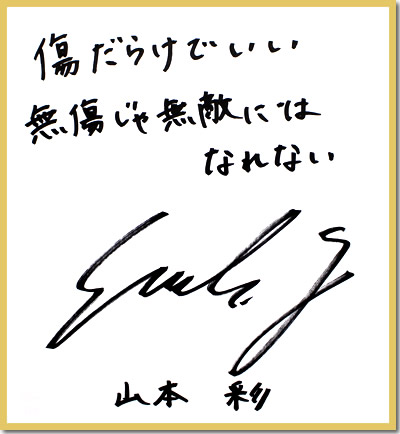 傷だらけでいい
無傷じゃ無敵には
なれない
山本 彩